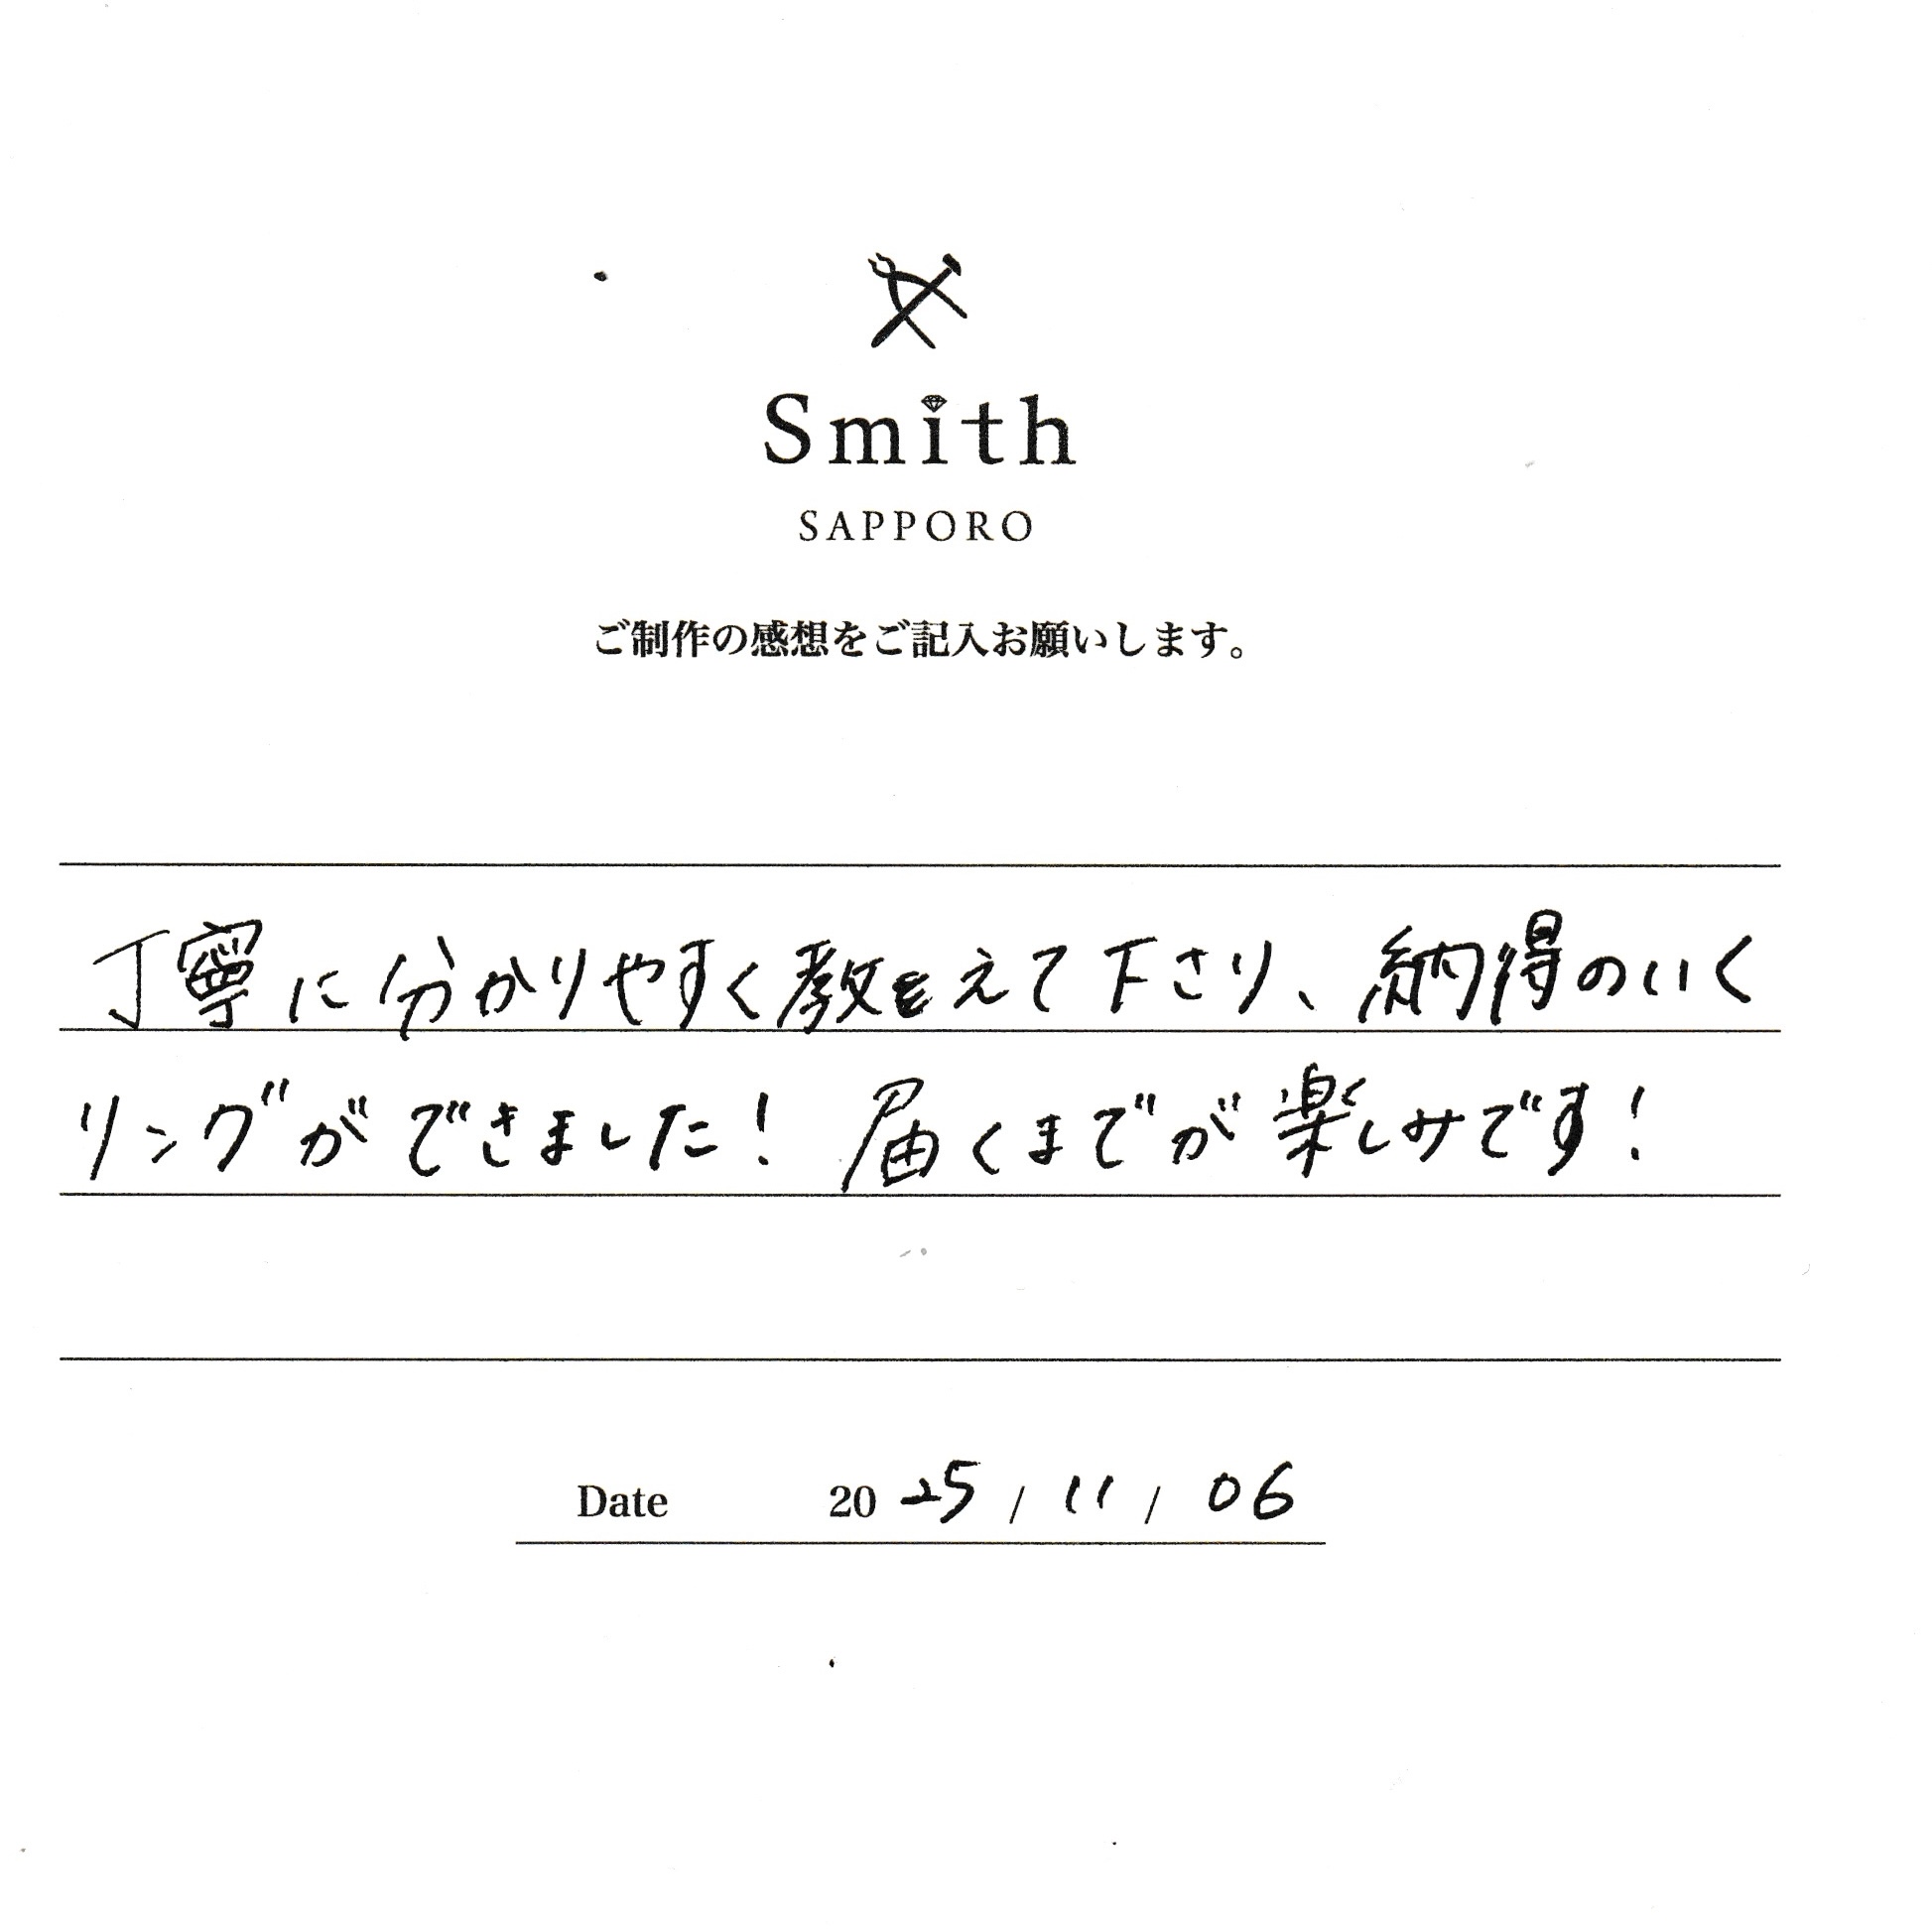 Smith
SAPPORO
ご制作の感想をご記入お願いします。
丁寧に分かりやすく教えて下さり、納得のいく
リングができました! 届くまでが楽しみです!
Date 2025/11/06